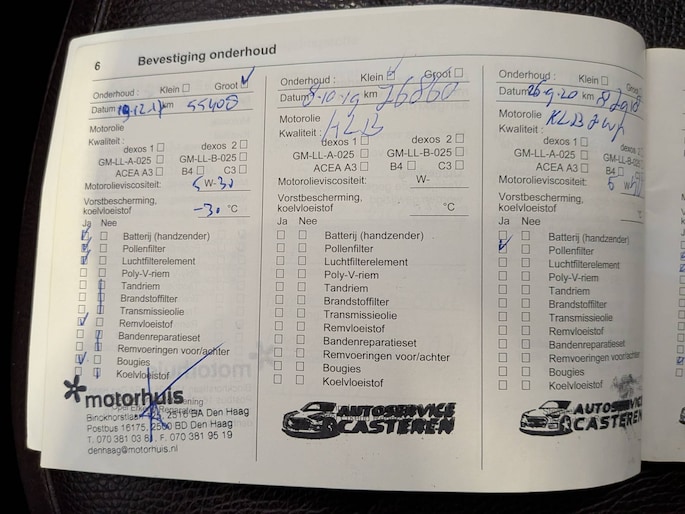 6 Bevestiging onderhoud
Onderhoud : Klein Groot
Datum 19-12-17 km 55408
Motorolie
Kwaliteit :
dexos 1 dexos 2
GM-LL-A-025 GM-LL-B-025
ACEA A3 B4 C3
Motorolieviscositeit: 5 W-30
Vorstbescherming,
koelvloeistof -30 °C
Ja Nee
Batterij (handzender)
Pollenfilter
Luchtfilterelement
Poly-V-riem
Tandriem
Brandstoffilter
Transmissieolie
Remvloeistof
Bandenreparatieset
Remvoeringen voor/achter
Bougies
Koelvloeistof
motorhuis
Binckhorstlaan 2516 BA Den Haag
Postbus 16175, 2500 BD Den Haag
T. 070 381 03 81, F. 070 381 95 19
denhaag@motorhuis.nl
Onderhoud : Klein Groot
Datum 8-10-19 km 76860
Motorolie
Kwaliteit :
dexos 1 dexos 2
GM-LL-A-025 GM-LL-B-025
ACEA A3 B4 C3
Motorolieviscositeit: W-
Vorstbescherming,
koelvloeistof °C
Ja Nee
Batterij (handzender)
Pollenfilter
Luchtfilterelement
Poly-V-riem
Tandriem
Brandstoffilter
Transmissieolie
Remvloeistof
Bandenreparatieset
Remvoeringen voor/achter
Bougies
Koelvloeistof
AUTOSERVICE
CASTEREN
Onderhoud : Klein
Datum 26-9-20 km
Motorolie
Kwaliteit :
dexos 1 dexos 2
GM-LL-A-025 GM-LL-B-025
ACEA A3 B4
Motorolieviscositeit: 5 W
Vorstbescherming,
koelvloeistof °C
Ja Nee
Batterij (handzender)
Pollenfilter
Luchtfilterelement
Poly-V-riem
Tandriem
Brandstoffilter
Transmissieolie
Remvloeistof
Bandenreparatieset
Remvoeringen voor/achter
Bougies
Koelvloeistof
AUTOSERVICE
CASTEREN